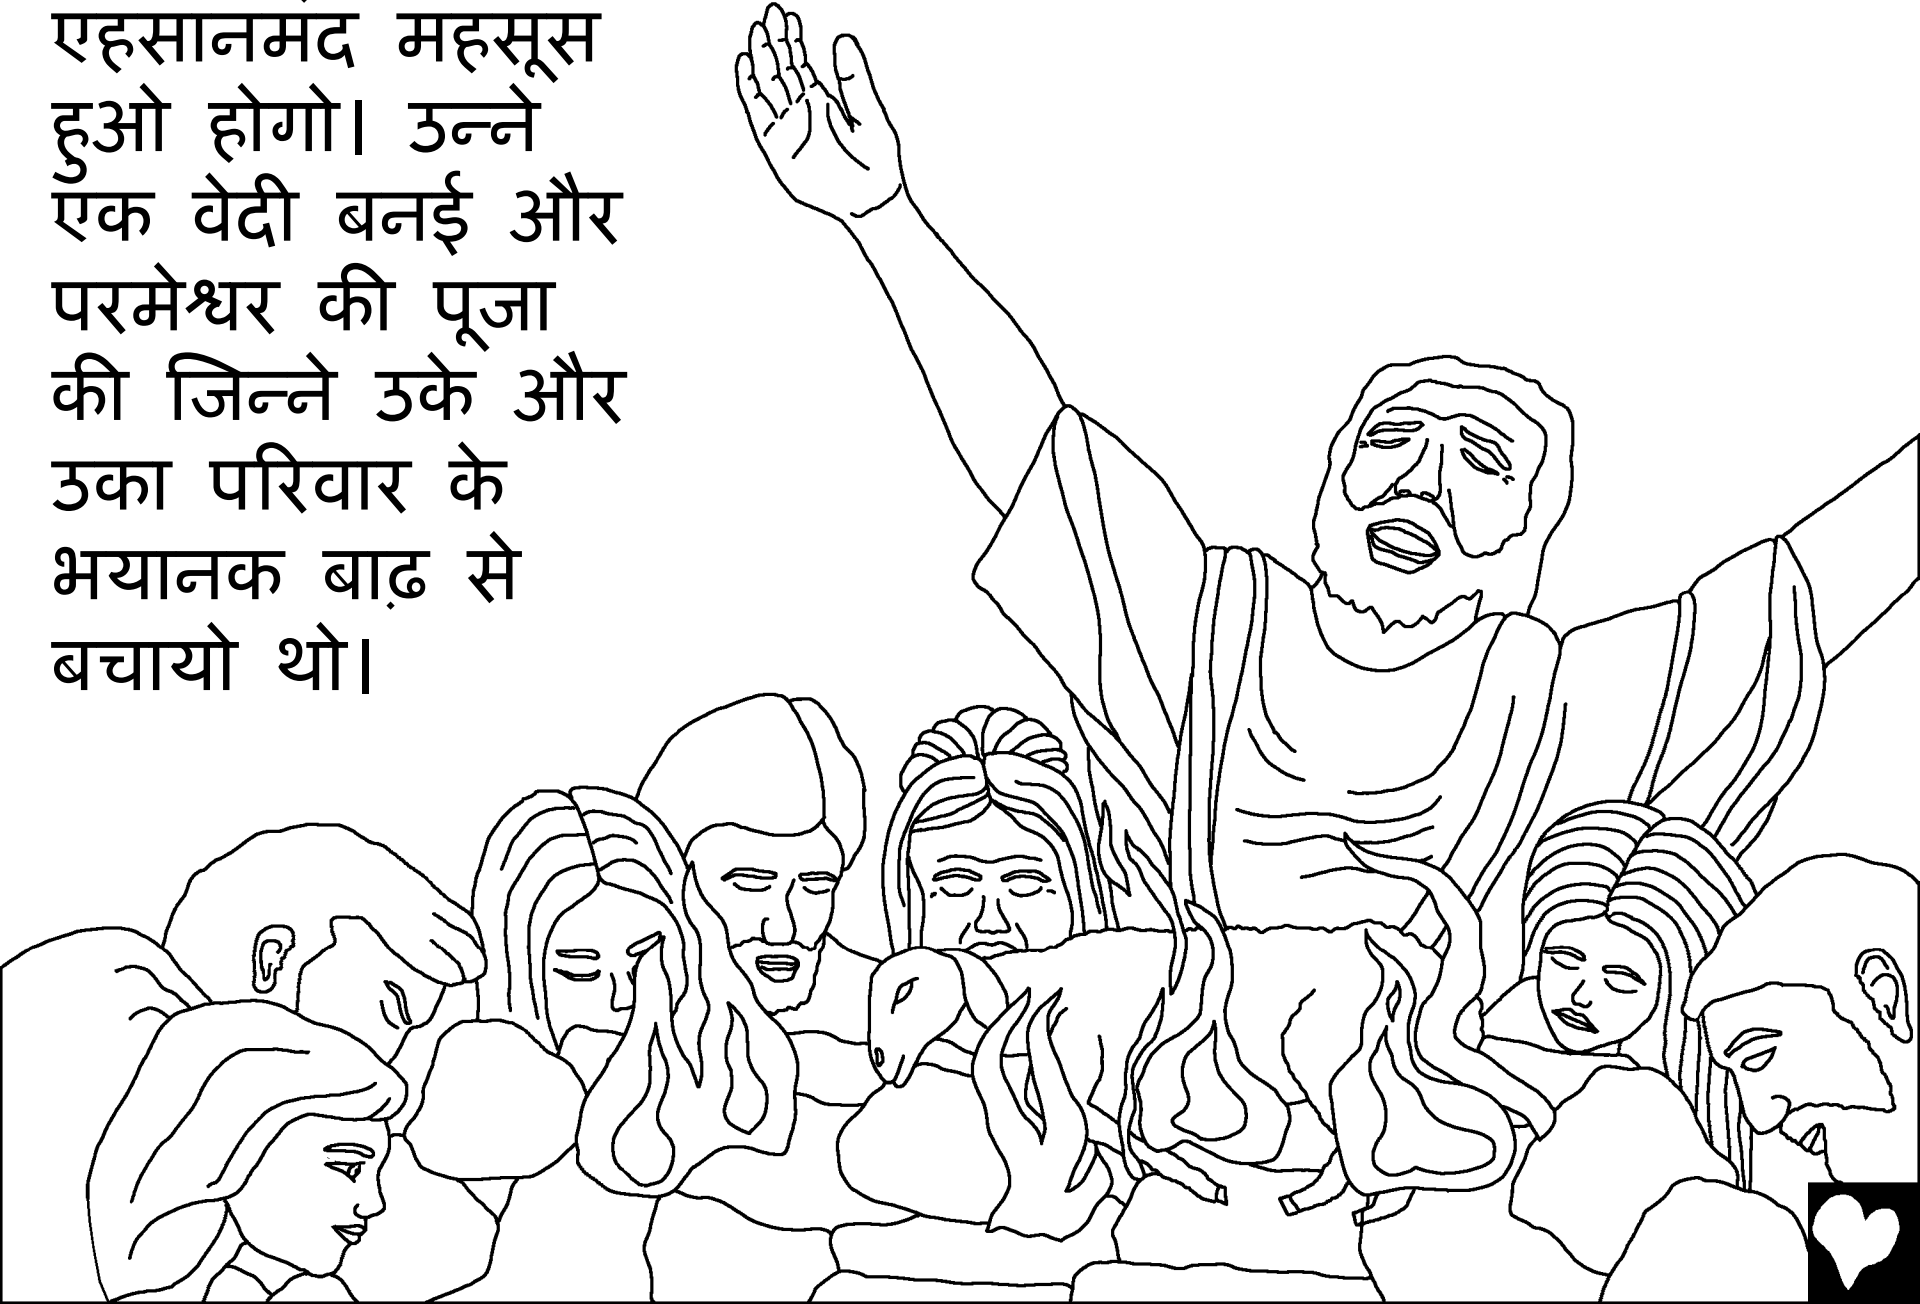 एहसानमंद महसूस
हुओ होगो। उन्ने
एक वेदी बनई और
परमेश्वर की पूजा
की जिन्ने उके और
उका परिवार के
भयानक बाढ़ से
बचायो थो।